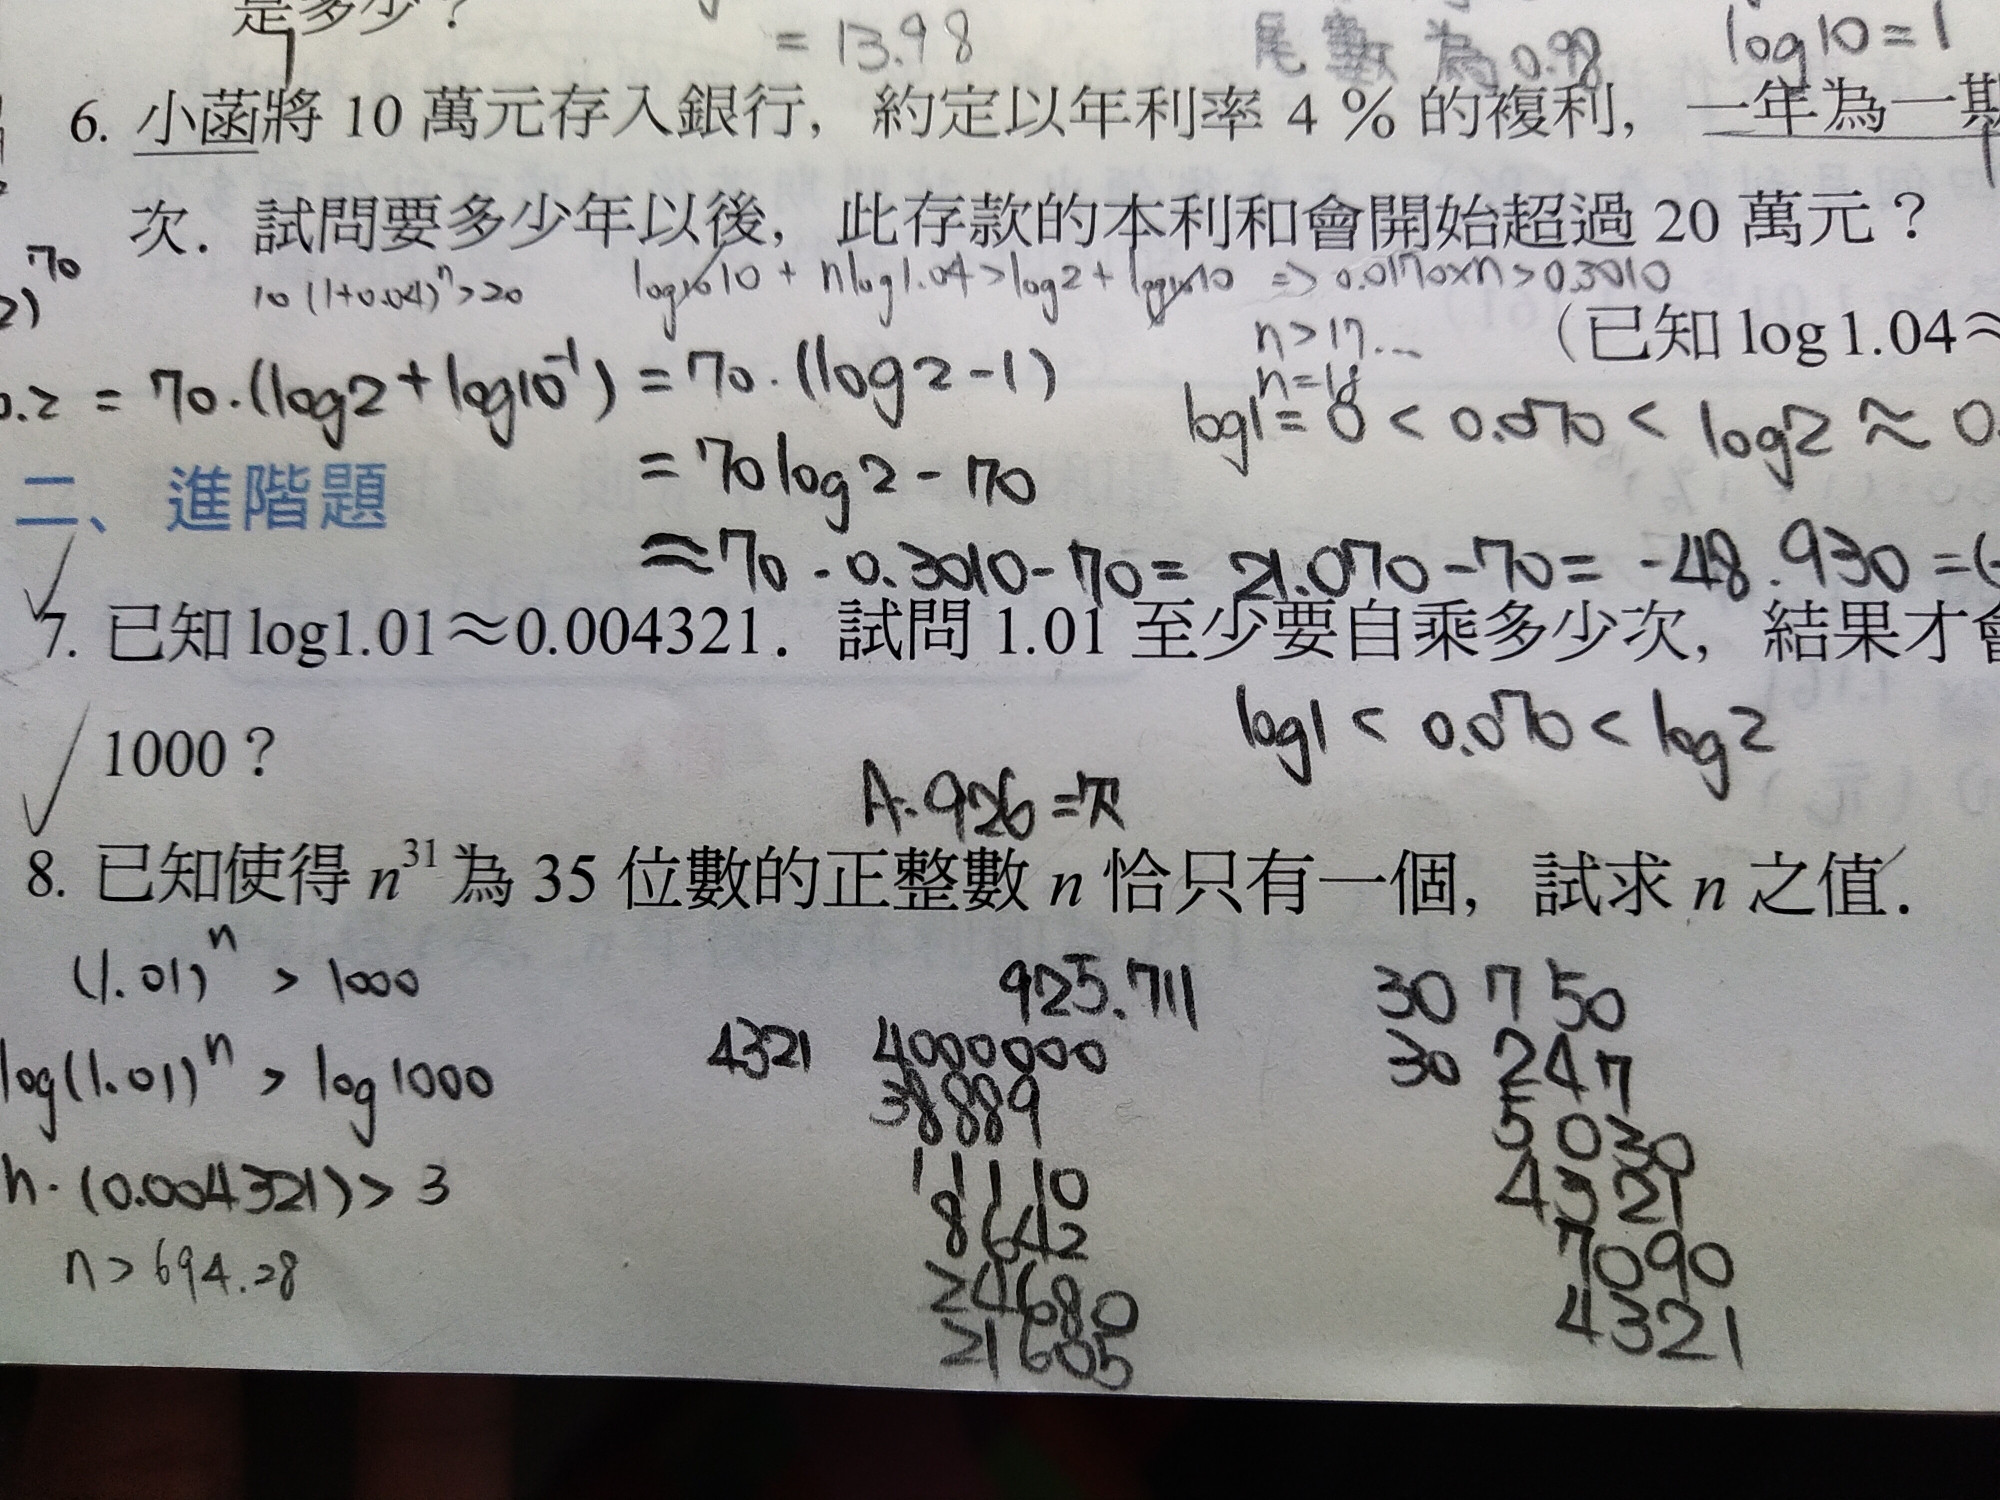 是多少？
= 13.98
尾數 為 0.98
log10 = 1
6. 小菡將 10 萬元存入銀行，約定以年利率 4 % 的複利，一年為一期
次．試問要多少年以後，此存款的本利和會開始超過 20 萬元？
70
2)
10(1+0.04)ⁿ>20
log10 + nlog1.04 > log2 + log10 => 0.0170×n > 0.3010
n > 17...
n=18
（已知 log 1.04≈
0.2 = 70·(log2 + log10⁻¹) = 70·(log2-1)
log1 = 0 < 0.070 < log2 ≈ 0.
= 70log2 - 70
二、進階題
≈ 70 · 0.3010 - 70 = 21.070 - 70 = -48.930 = (-
7. 已知 log1.01≈0.004321．試問 1.01 至少要自乘多少次，結果才會
log1 < 0.070 < log2
1000？
A. 926 次
8. 已知使得 n³¹ 為 35 位數的正整數 n 恰只有一個，試求 n 之值．
(1.01)ⁿ > 1000
925.711
30 7 50
4321 4000000
30 247
log(1.01)ⁿ > log1000
38889
5030
11110
4321
n·(0.004321) > 3
8642
7090
n > 694.28
24680
4321
21605